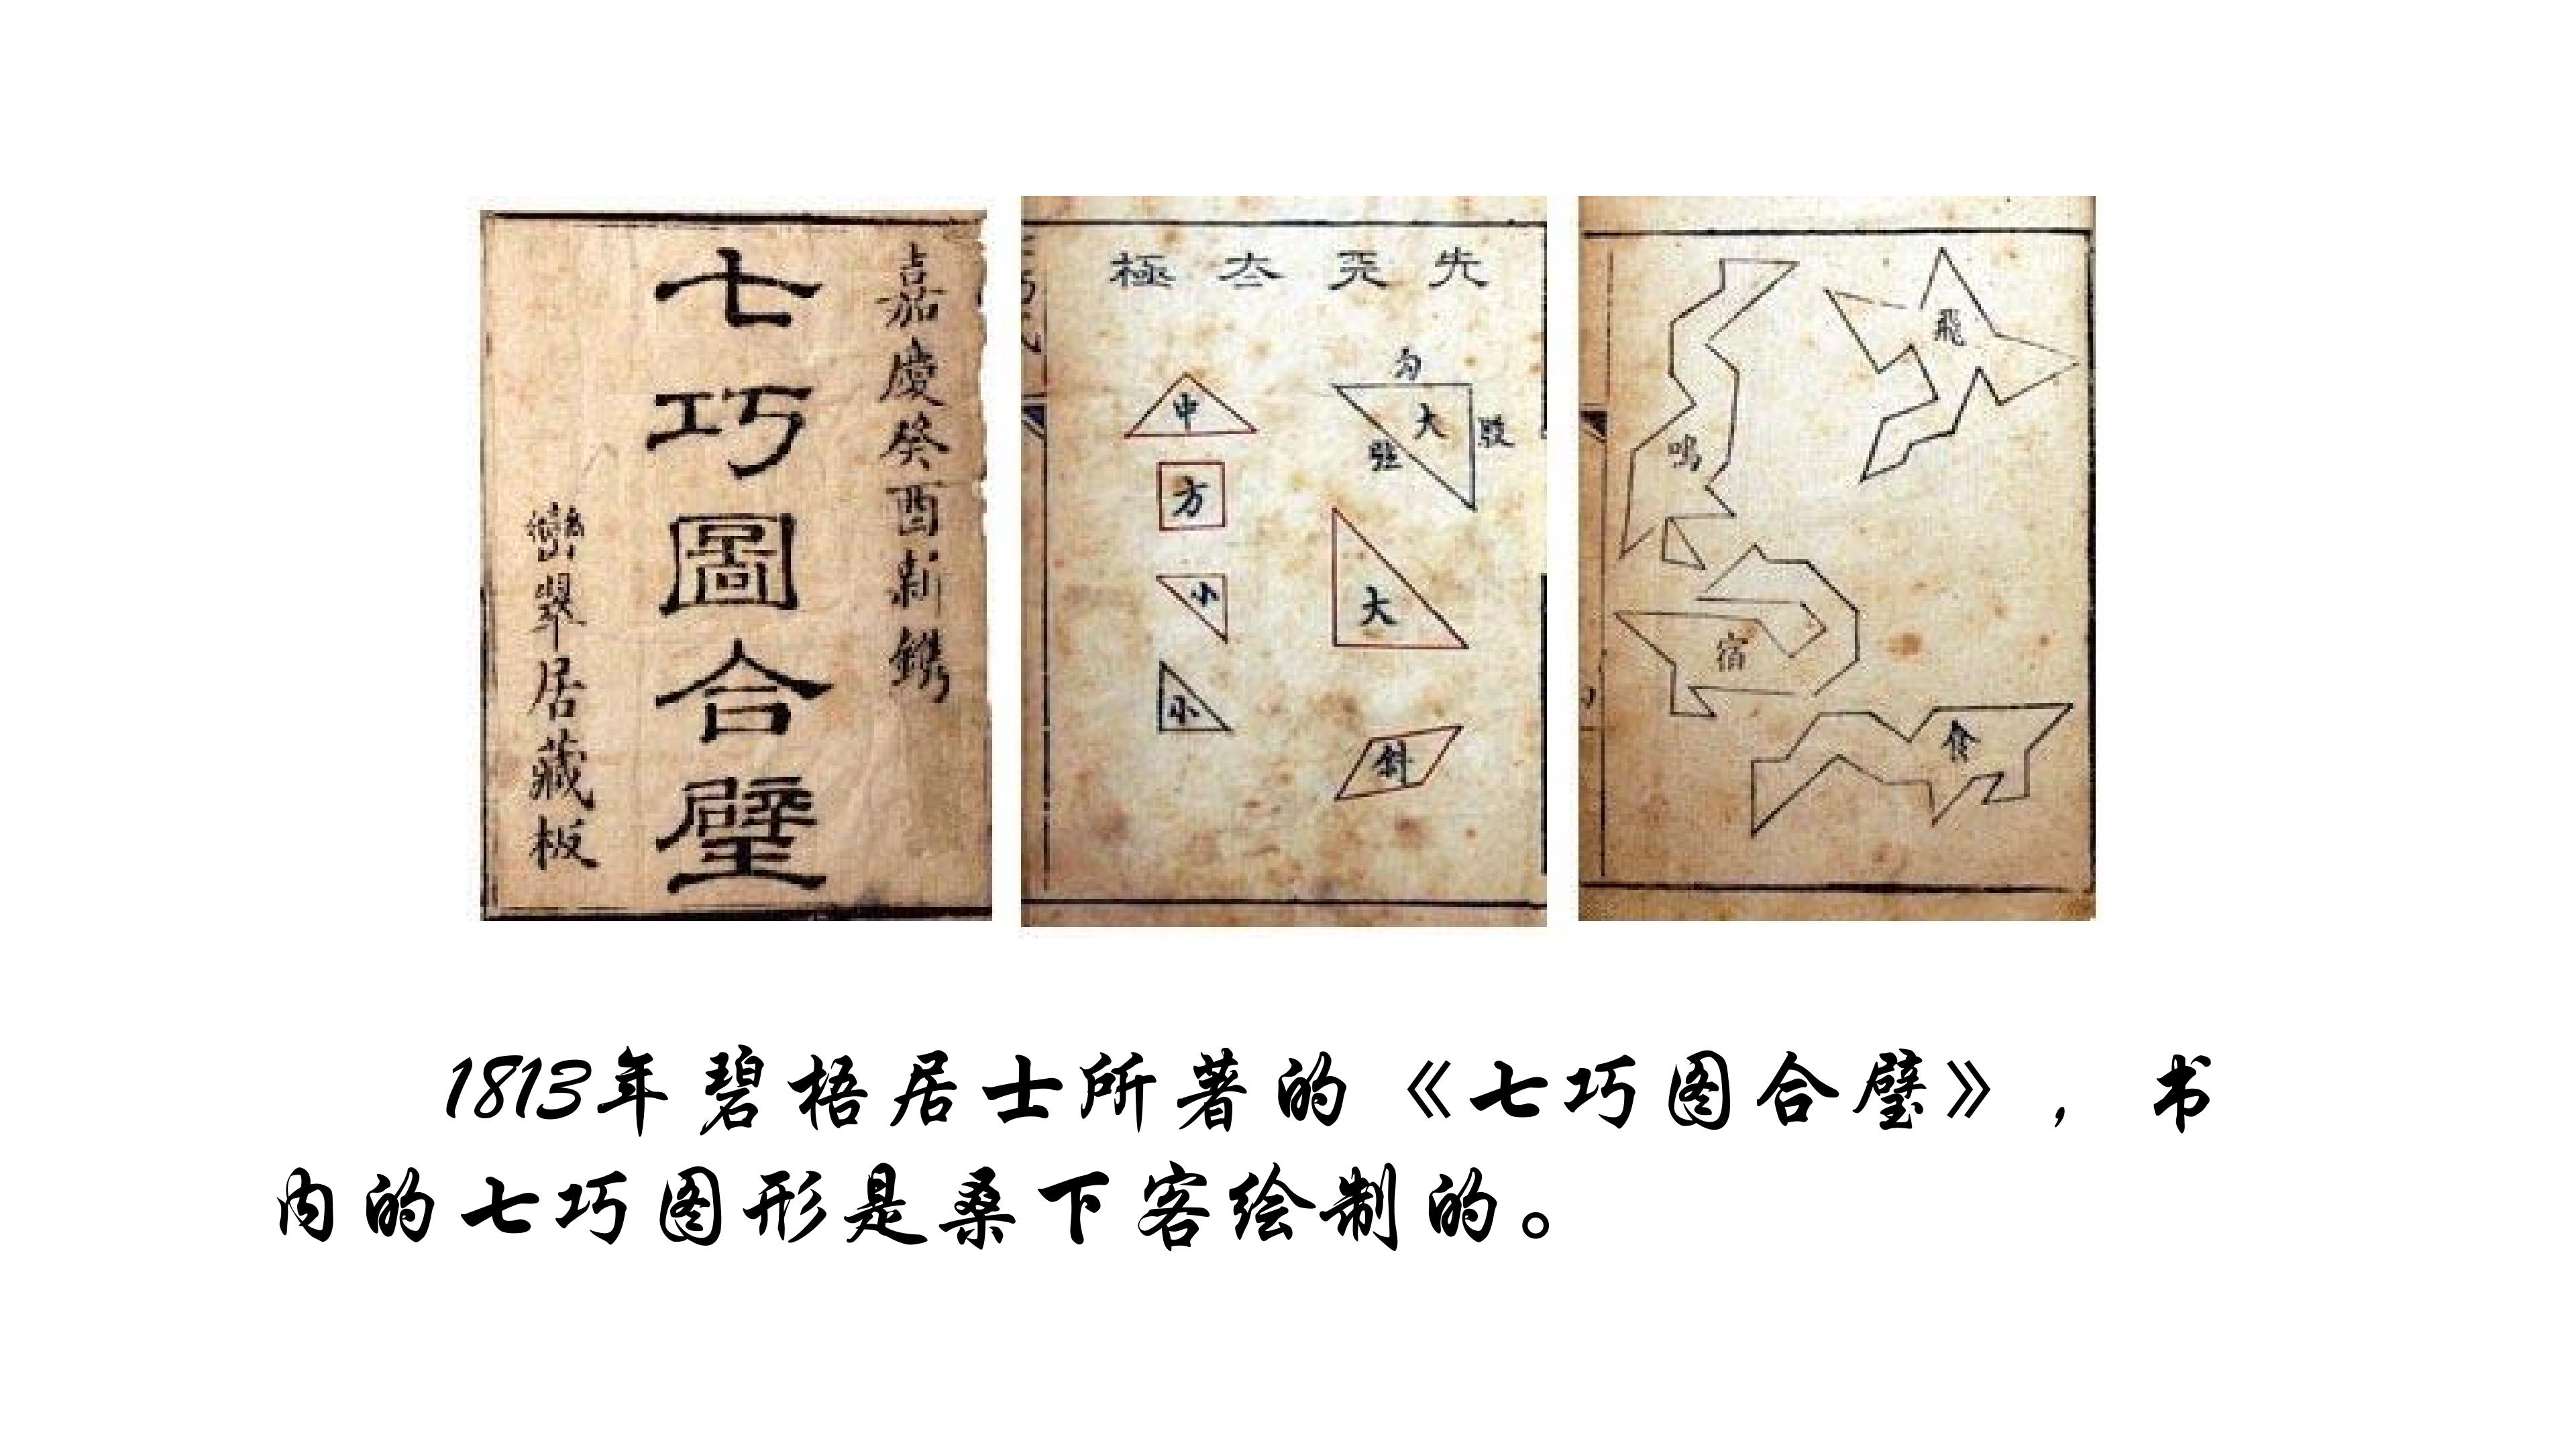 嘉慶癸酉新鐫
七巧圖合璧
巒翠居藏板
先天太極
勾
大
股
弦
中
方
大
小
小
斜
飛
鳴
宿
食
1813年碧梧居士所著的《七巧图合璧》,书
内的七巧图形是桑下客绘制的。